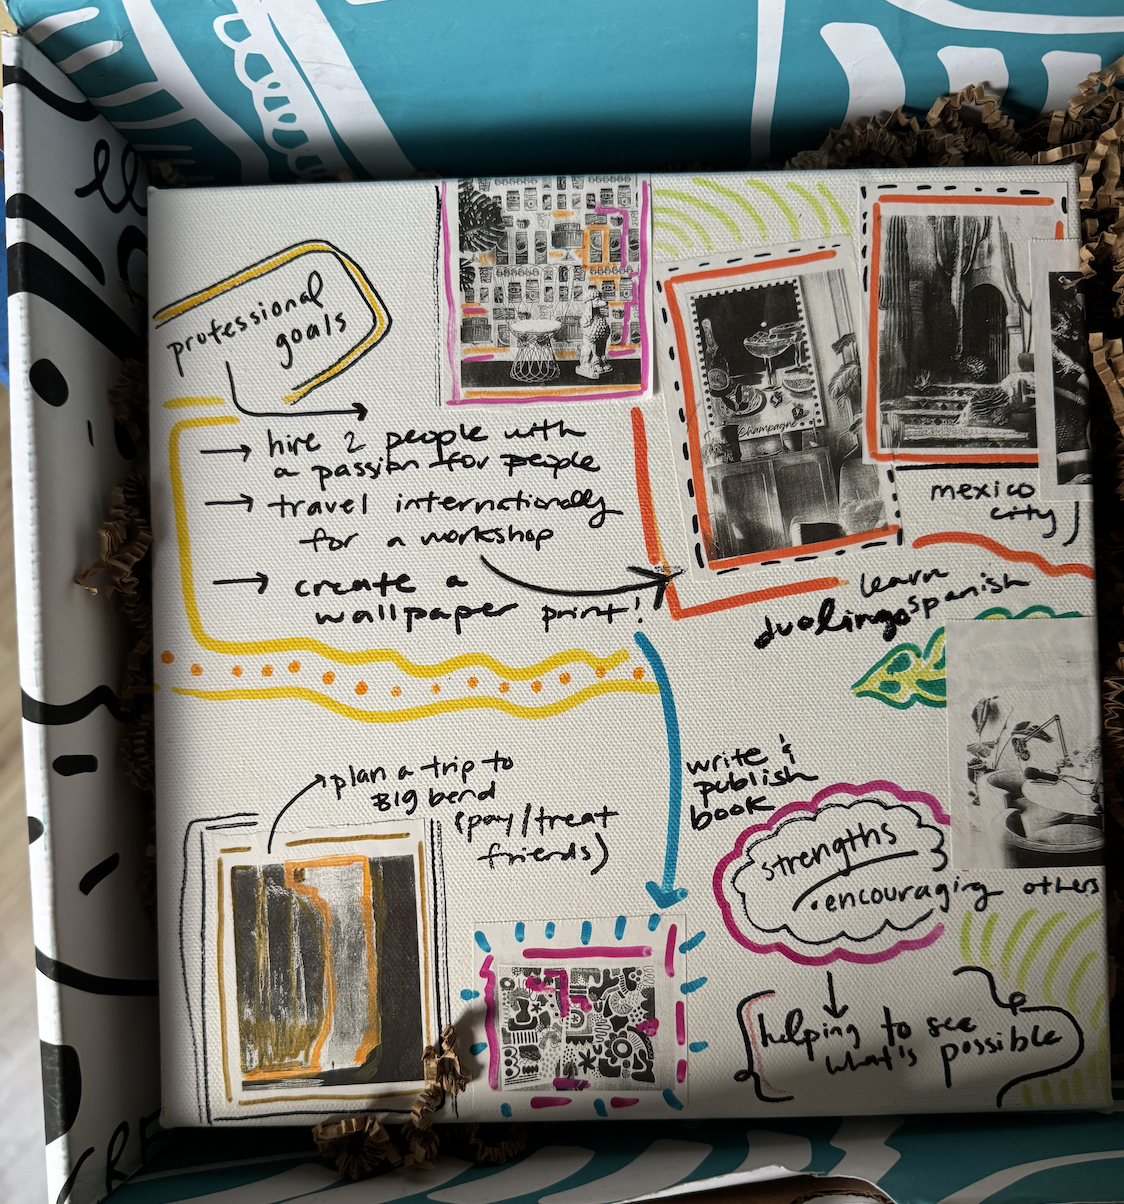 professional
goals
→ hire 2 people with
a passion for people
→ travel internationally
for a workshop
→ create a
wallpaper print!
Champagne
mexico
city
learn
spanish
duolingo
plan a trip to
Big bend
(pay/treat
friends)
write &
publish
book
strengths
• encouraging others
helping to see
what's possible
CRE